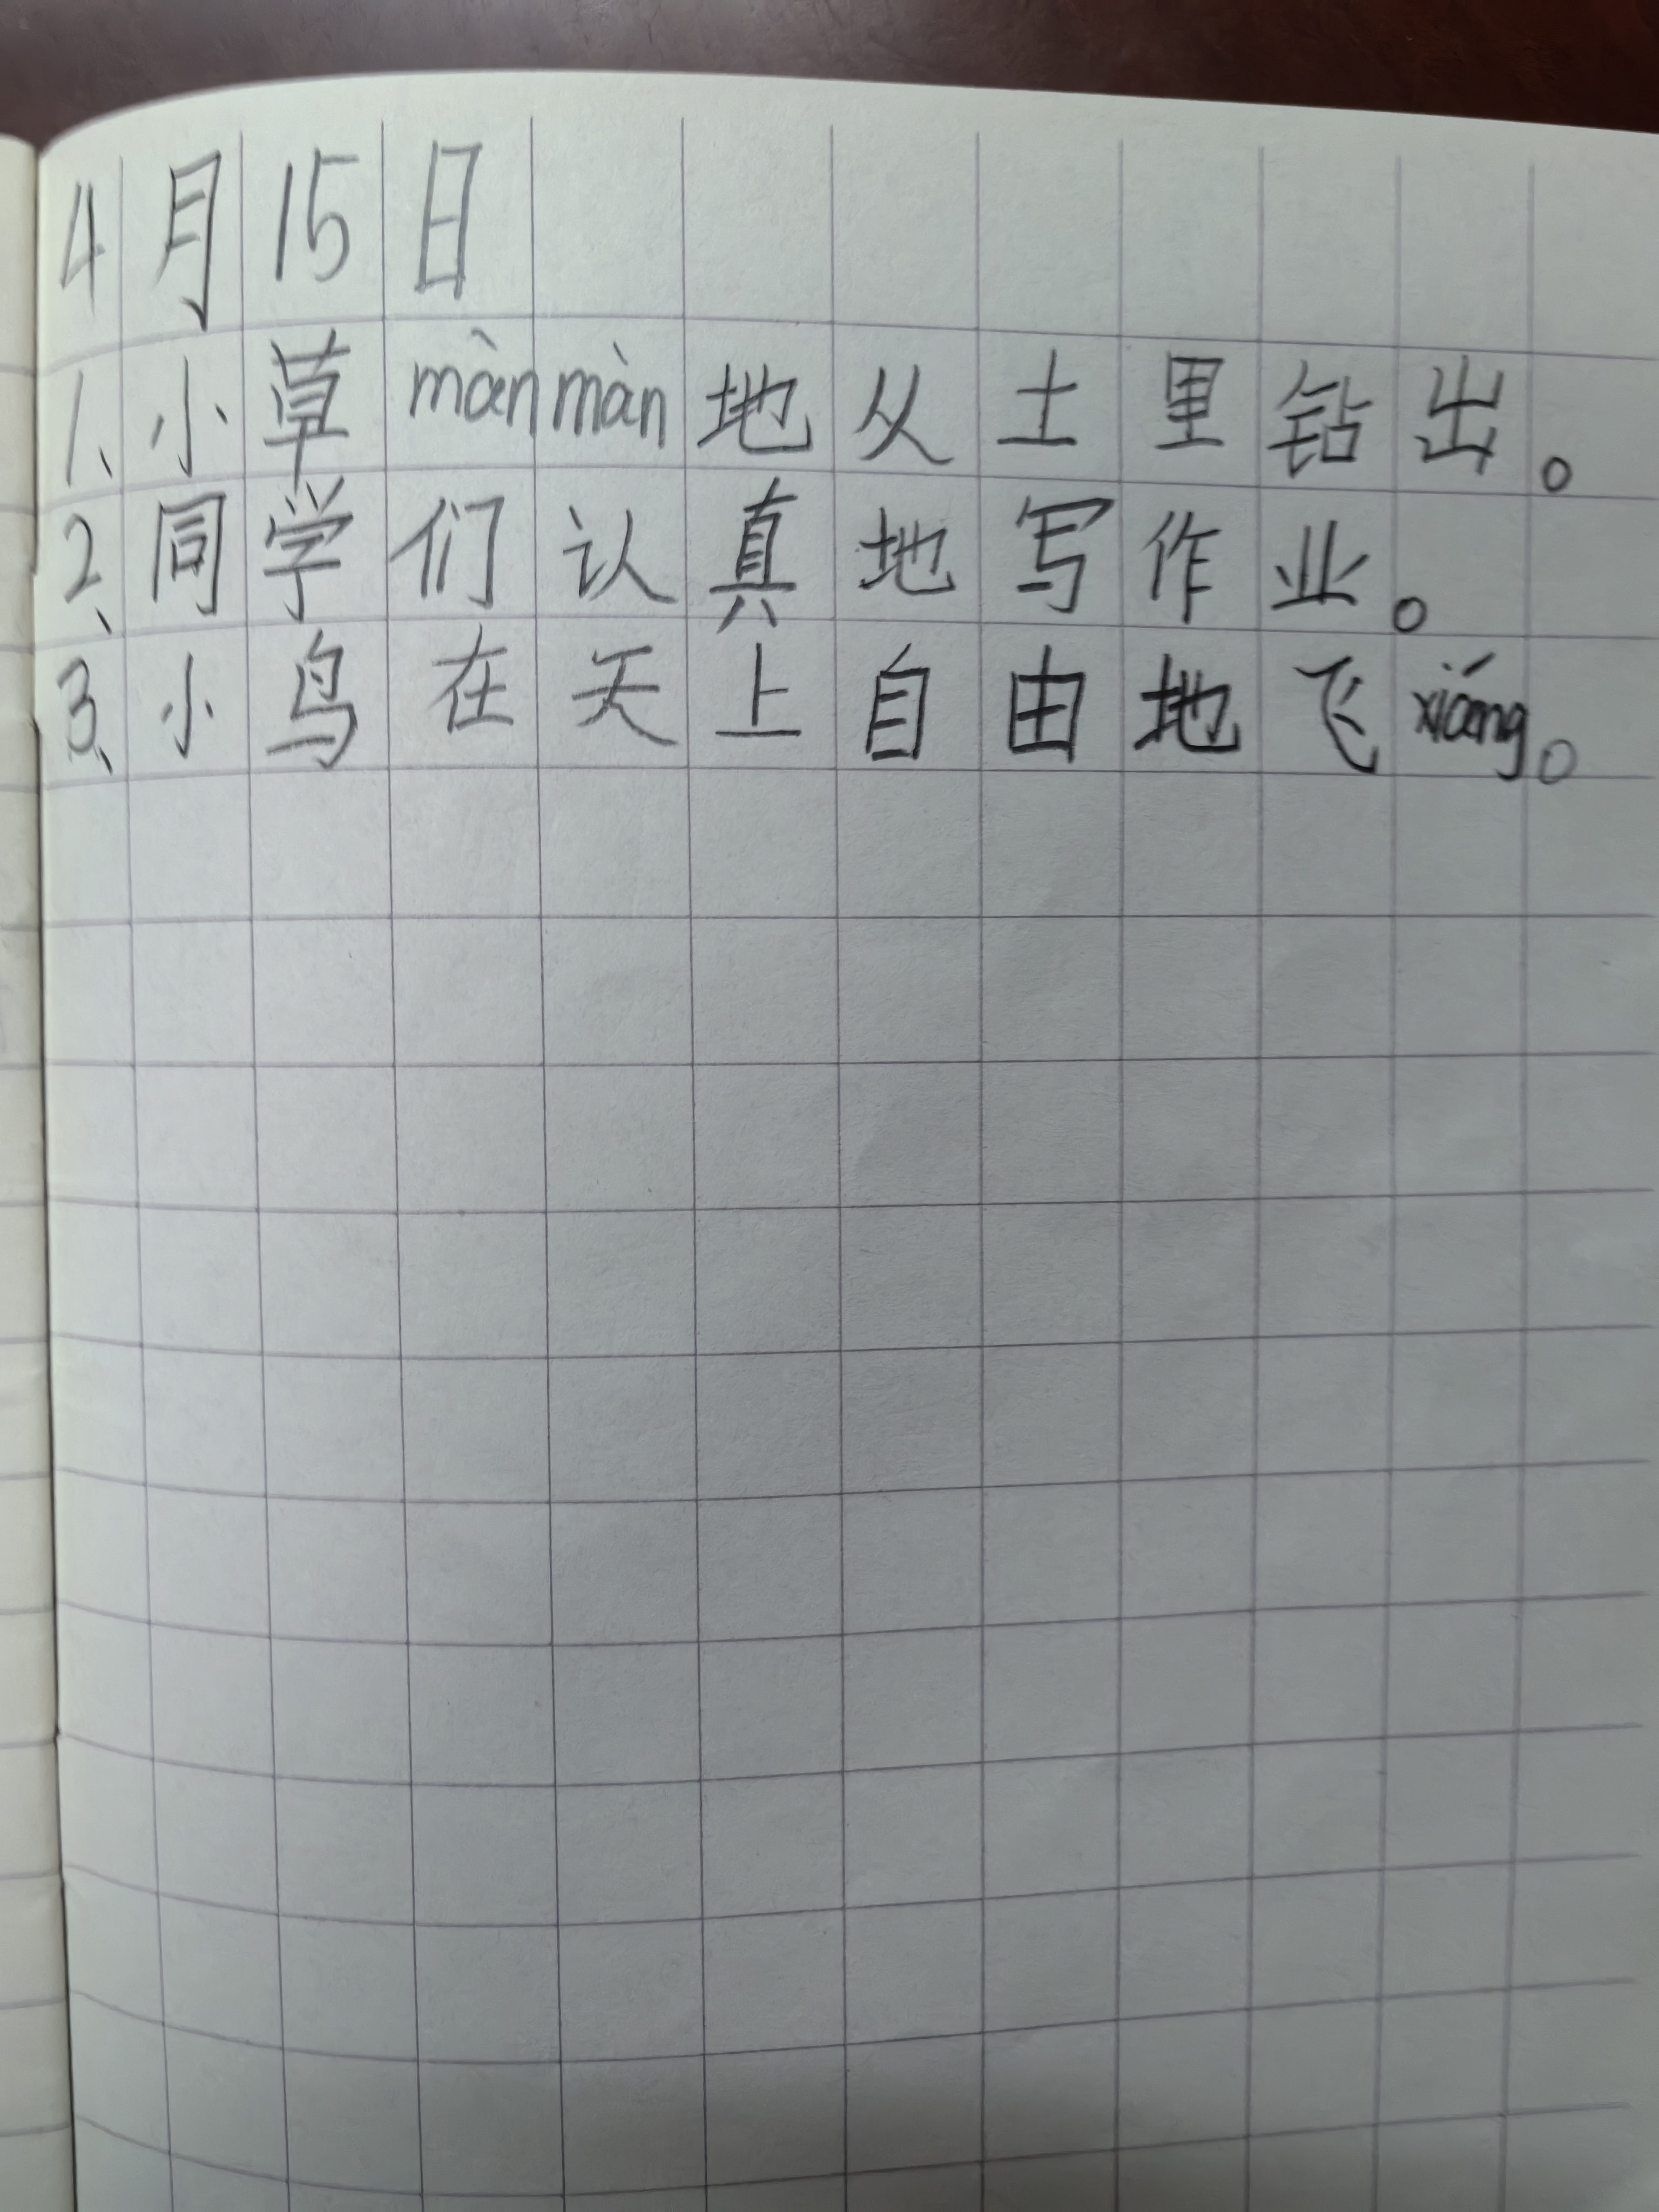 4月15日
1、小草mànmàn地从土里钻出。
2、同学们认真地写作业。
3、小鸟在天上自由地飞xiáng。